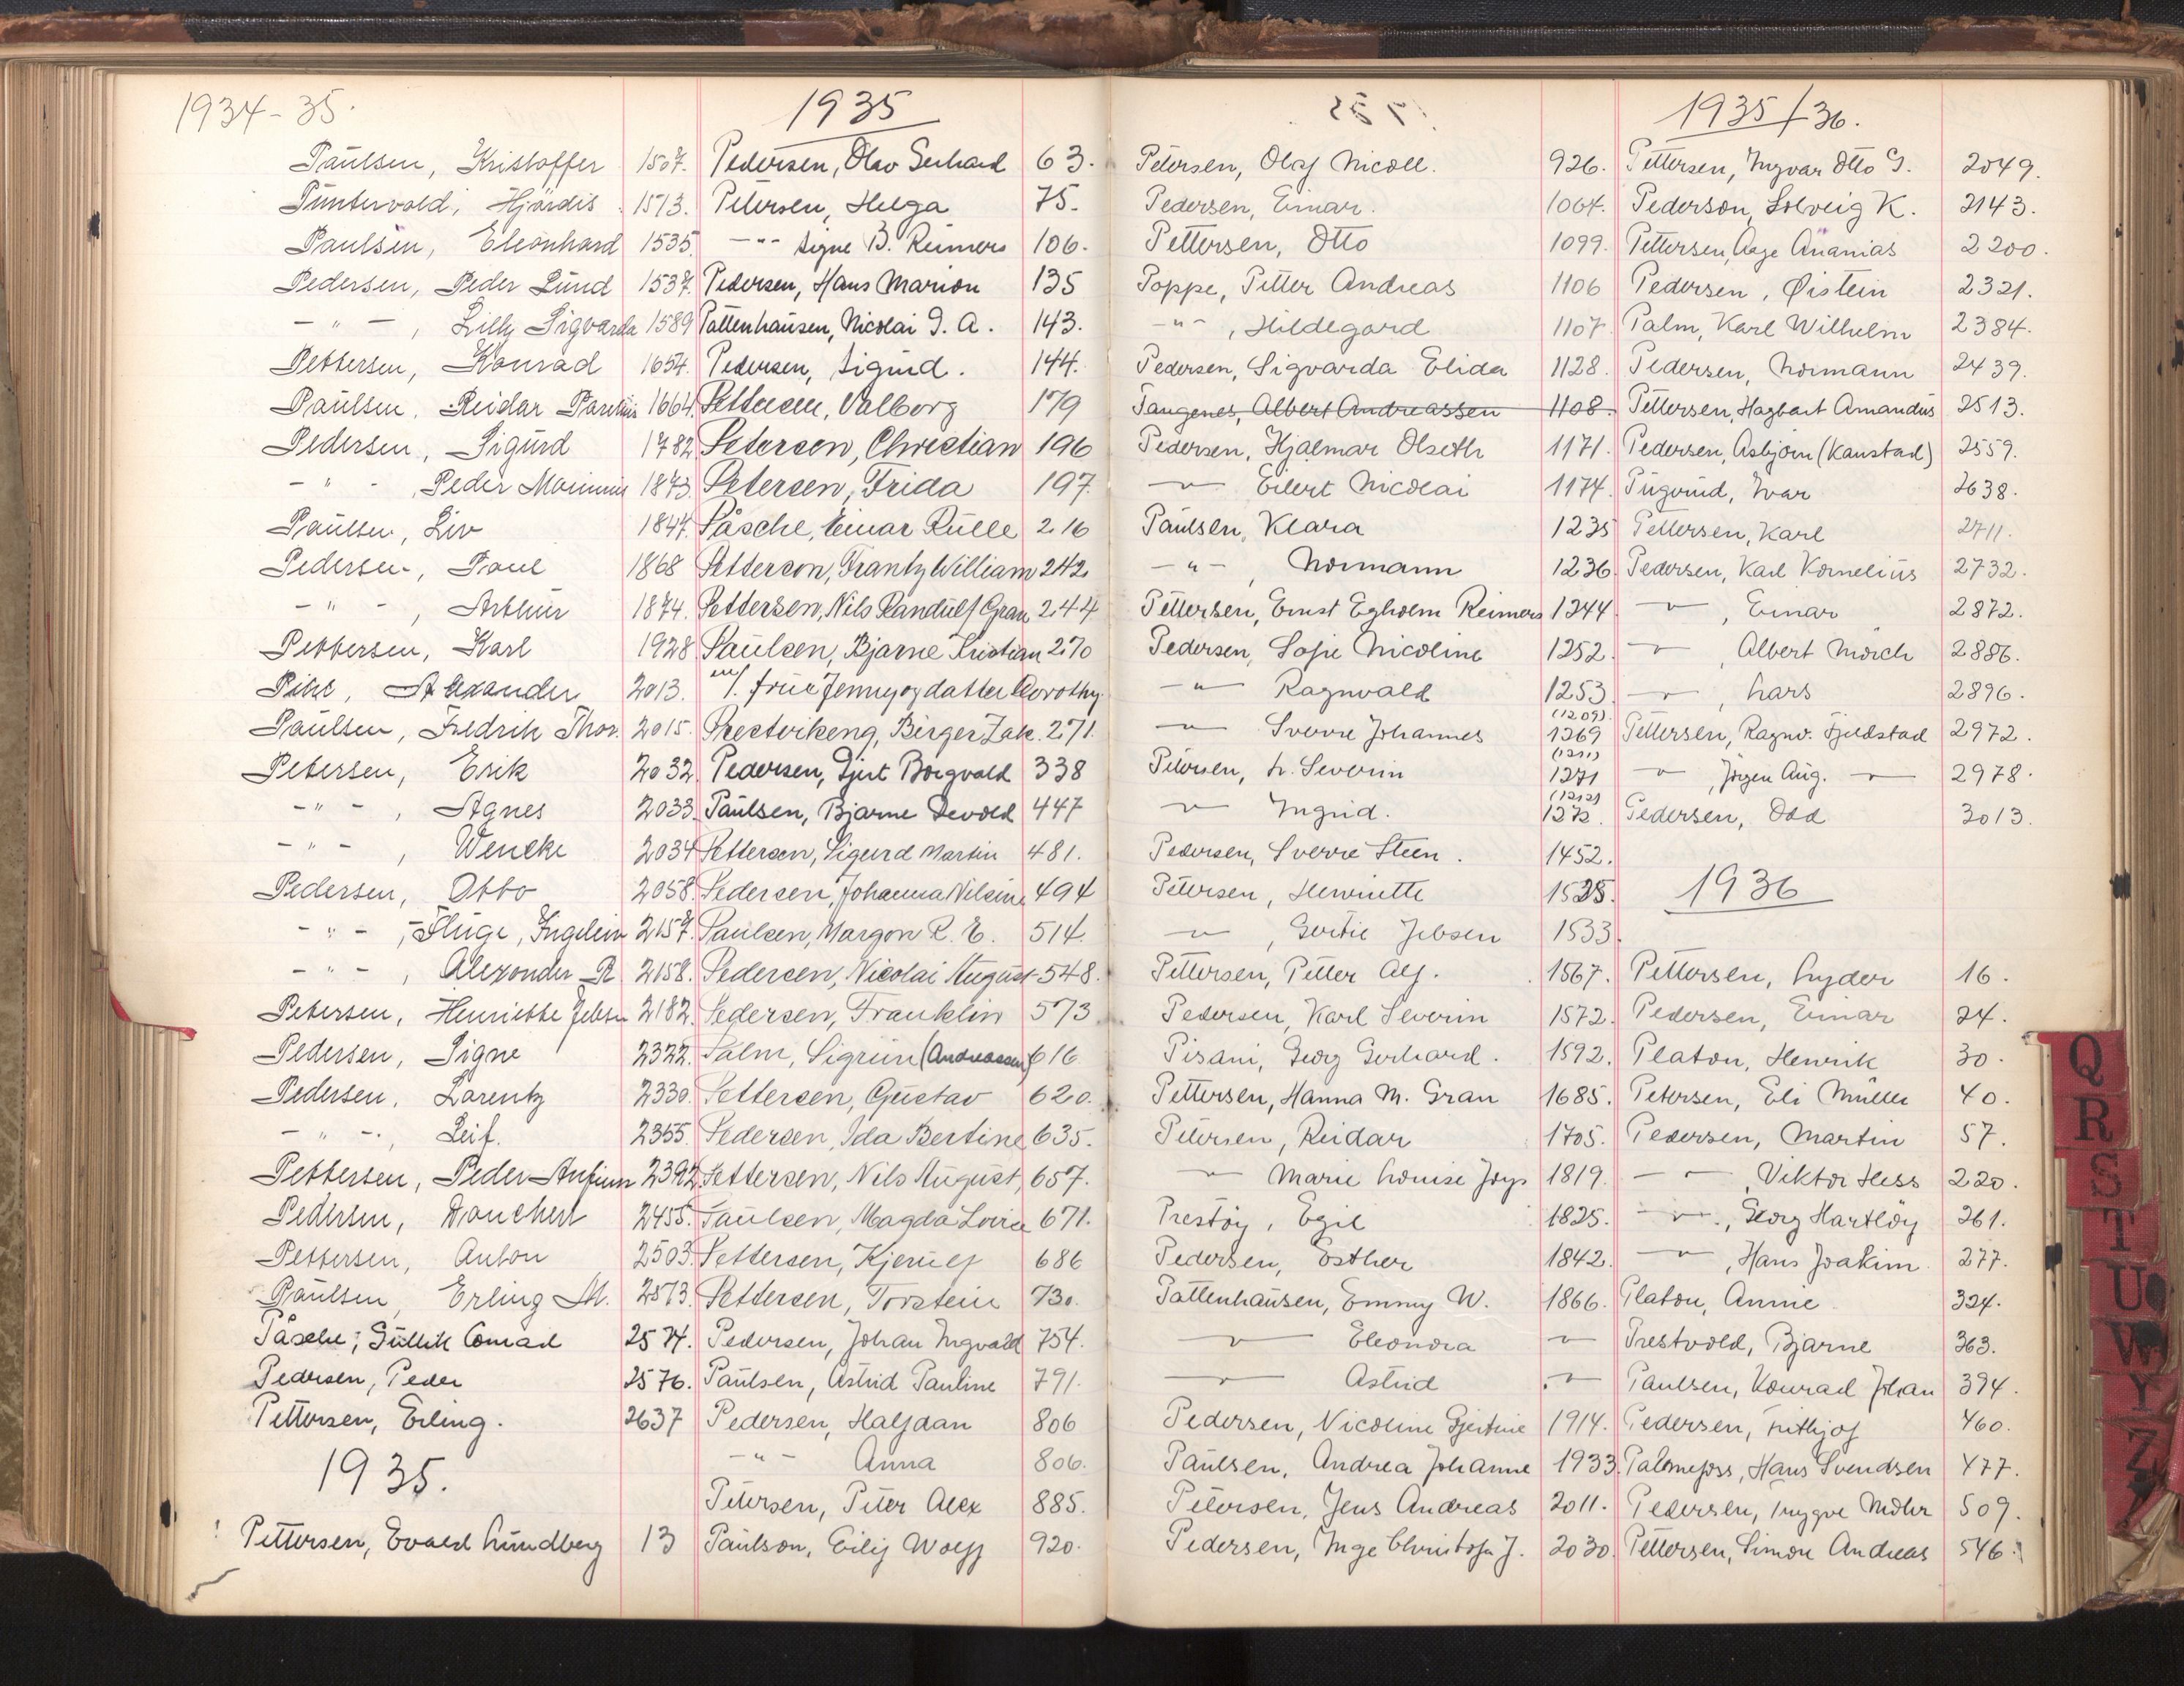 1934-35.
Paulsen, Kristoffer 1507.
Puntervold, Hjørdis 1513.
Paulsen, Eleonhard 1535
Pedersen, Peder Lund 1537.
- " - , Lilly Sigvarda 1589
Pettersen, Konrad 1654.
Paulsen, Reidar 1664.
Pedersen, Sigurd 1782
- " - , Peder 1873.
Paulsen, Liv 1847.
Pedersen, Paul 1868
- " - , Arthur 1874.
Pettersen, Karl 1928
Pihl, Alexander 2013.
Paulsen, Fredrik Thor. 2015.
Petersen, Erik 2032
- " - , Agnes 2033.
- " - , Wencke 2034
Pedersen, Otto 2058.
- " - , Fluge, Ingelein 2157.
- " - , Alexander R. 2158.
Petersen, Henriette Jebsen 2182.
Pedersen, Signe 2322.
Pedersen, Lorentz 2330.
- " - , Leif. 2355.
Pettersen, Peder Anfinn 2392
Pedersen, Danckert 2455.
Pettersen, Anton 2503.
Paulsen, Erling M. 2573.
Påsche, Gullik Conrad 2574.
Pedersen, Peder 2576.
Pettersen, Erling. 2637
1935.
Pettersen, Evald Lundberg 13
1935
Pedersen, Olav Gerhard 63.
Petersen, Helga 75.
-"- Signe B. Reimers 106.
Pedersen, Hans Marion 135
Pattenhausen, Nicolai I. A. 143.
Pedersen, Sigurd. 144.
Pettersen, Valborg 179
Petersen, Christian 196
Petersen, Frida 197.
Påsche, Einar Rulle 216
Petterson, Frantz William 242
Pettersen, Nils Randulf Gran 244
Paulsen, Bjarne Kristian 270
m/ frue Jenny og datter Dorothy.
Prestvikeng, Birger Zak. 271.
Pedersen, Gjert Borgvald 338
Paulsen, Bjarne Devold 447
Pettersen, Sigurd Martin 481.
Pedersen, Johanna Nilsine 494
Paulsen, Margon R. E. 514.
Pedersen, Nicolai August 548.
Pedersen, Franklin 573
Palm, Sigrun (Andreassen) 616
Pettersen, Gustav 620.
Pedersen, Ida Bertine 635.
Pettersen, Nils August, 657.
Paulsen, Magda Lovise 671.
Pettersen, Kjerulf 686
Pettersen, Torstein 730.
Pedersen, Johan Ingvald 754.
Paulsen, Astrid Pauline 791.
Pedersen, Halfdan 806
- " - Anna 806.
Petersen, Peter Alex 885.
Paulson, Eilif Wolff 920.
Petersen, Olaf Nicoll. 926.
Pedersen, Einar. 1064.
Pettersen, Otto 1099.
Poppe, Petter Andreas 1106
-"- , Hildegard 1107.
Pedersen, Sigvarda Elida 1128.
Tangenes, Albert Andreassen 1108.
Pedersen, Hjalmar Olseth 1171.
-"- Eilert Nicolai 1174.
Paulsen, Klara 1235
-"- , Normann 1236.
Pettersen, Ernst Egholm Reimers 1244
Pedersen, Sofie Nicoline 1252.
-"- Ragnvald 1253
-"- Sverre Johannes (1209) 1269
Petersen, H. Severin (1211) 1271
-"- Ingrid. (1212) 1272.
Pedersen, Sverre Steen. 1452.
Petersen, Henriette 1525.
-"- , Gertie Jebsen 1533.
Pettersen, Petter Alf. 1567.
Pedersen, Karl Severin 1572.
Pisani, Georg Gerhard. 1592.
Pettersen, Hanna M. Gran 1685.
Petersen, Reidar 1705.
-"- Marie Louise Joys 1819.
Prestøy, Egil 1825.
Pedersen, Esther 1842.
Pattenhausen, Emmy W. 1866.
-"- Eleonora -"-
-"- Astrid -"-
Pedersen, Nicoline Gjertine 1914.
Paulsen, Andrea Johanne 1933.
Petersen, Jens Andreas 2011.
Pedersen, Inge Christofa J. 2030.
1935/36.
Pettersen, Ingvar Otto G. 2049.
Pederson, Solveig K. 2143.
Pettersen, Aage Ananias 2200.
Pedersen, Øistein 2321.
Palm, Karl Wilhelm 2384.
Pedersen, Normann 2439.
Pettersen, Hagbart Amandus 2513.
Pedersen, Asbjørn (Kanstad) 2559.
Pugerud, Ivar 2638.
Pettersen, Karl 2711.
Pedersen, Karl Kornelius 2732.
-"- , Einar 2872.
-"- , Albert Mørch 2886.
-"- , Lars 2896.
Pettersen, Ragnv. Fjeldstad 2972.
-"- , Jørgen Aug. -"- 2978.
Pedersen, Odd 3013.
1936
Pettersen, Lyder 16.
Pedersen, Einar 24.
Platou, Henrik 30.
Petersen, Eli Müller 40.
Pedersen, Martin 57.
-"- , Viktor Hess 220.
-"- , Georg Hartløy 261.
-"- , Hans Joakim 277.
Platou, Annie 324.
Prestvold, Bjarne 363.
Paulsen, Konrad Johan 394.
Pedersen, Frithjof 460.
Palmefoss, Hans Svendsen 477.
Pedersen, Trygve Mohr 509.
Pettersen, Simon Andreas 546.
Q
R
S
T
U
W
Y
Z